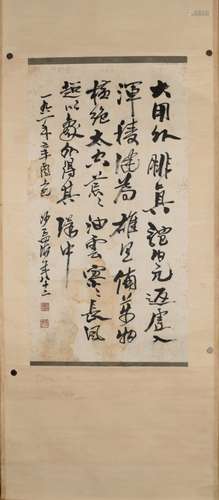 大用外腓真體內充返虛入
渾積健為雄具備萬物
橫絕太空荒〻油雲寥〻長風
超以象外得其環中
一九八一年辛酉 沙孟海年八十二